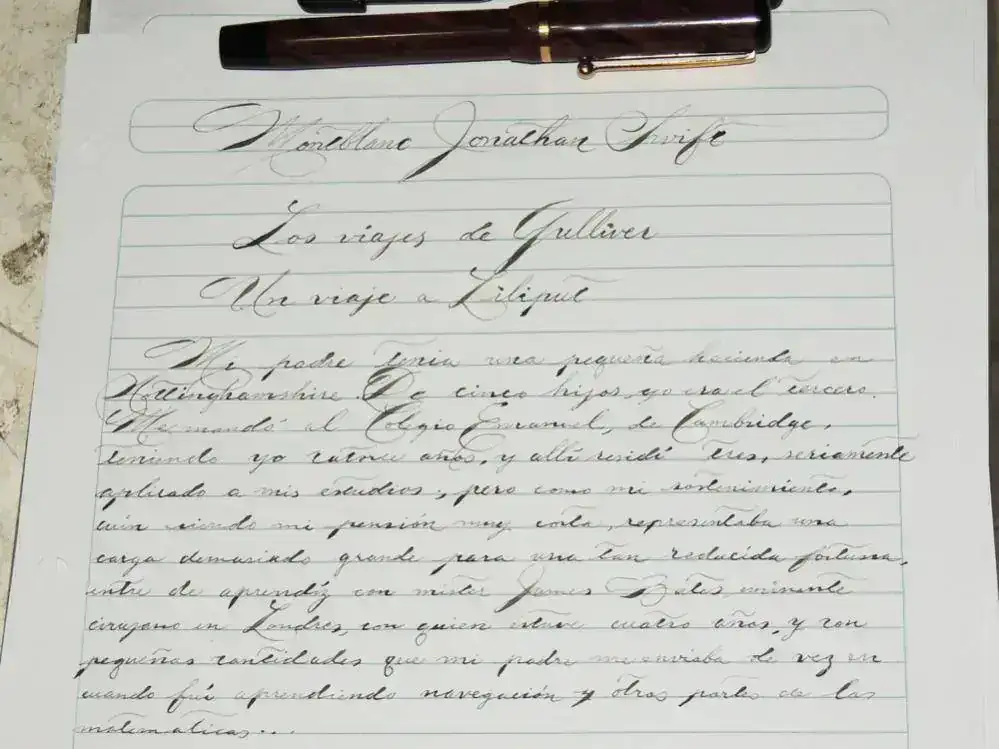 Montblanc Jonathan Swift
Los viajes de Gulliver
Un viaje a Liliput
Mi padre tenia una pequeña hacienda en
Nottinghamshire. De cinco hijos, yo era el tercero.
Me mandó al Colegio Emanuel, de Cambridge,
teniendo yo catorce años, y allí residí tres, seriamente
aplicado a mis estudios; pero como mi sostenimiento,
aún siendo mi pensión muy corta, representaba una
carga demasiado grande para una tan reducida fortuna,
entre de aprendiz con mister James Bates, eminente
cirujano en Londres, con quien estuve cuatro años, y con
pequeñas cantidades que mi padre me enviaba de vez en
cuando fuí aprendiendo navegación y otras partes de las
matemáticas...